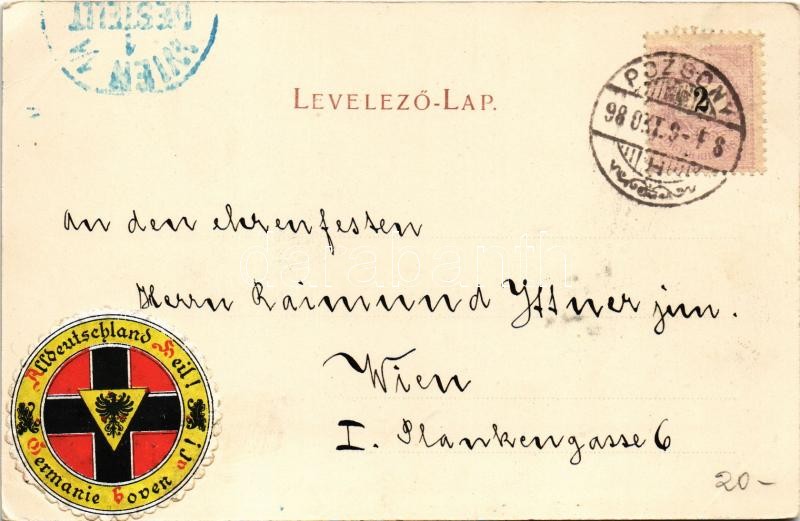 WIEN
BESTELLT
1
LEVELEZŐ-LAP.
POZSONY
98 OKT. 3
2
An den ehrenfesten
Herrn Raimund Ittner jun.
Wien
I. Plankengasse 6
darabanth
Alldeutschland Heil!
Germanie hoven al!
20-